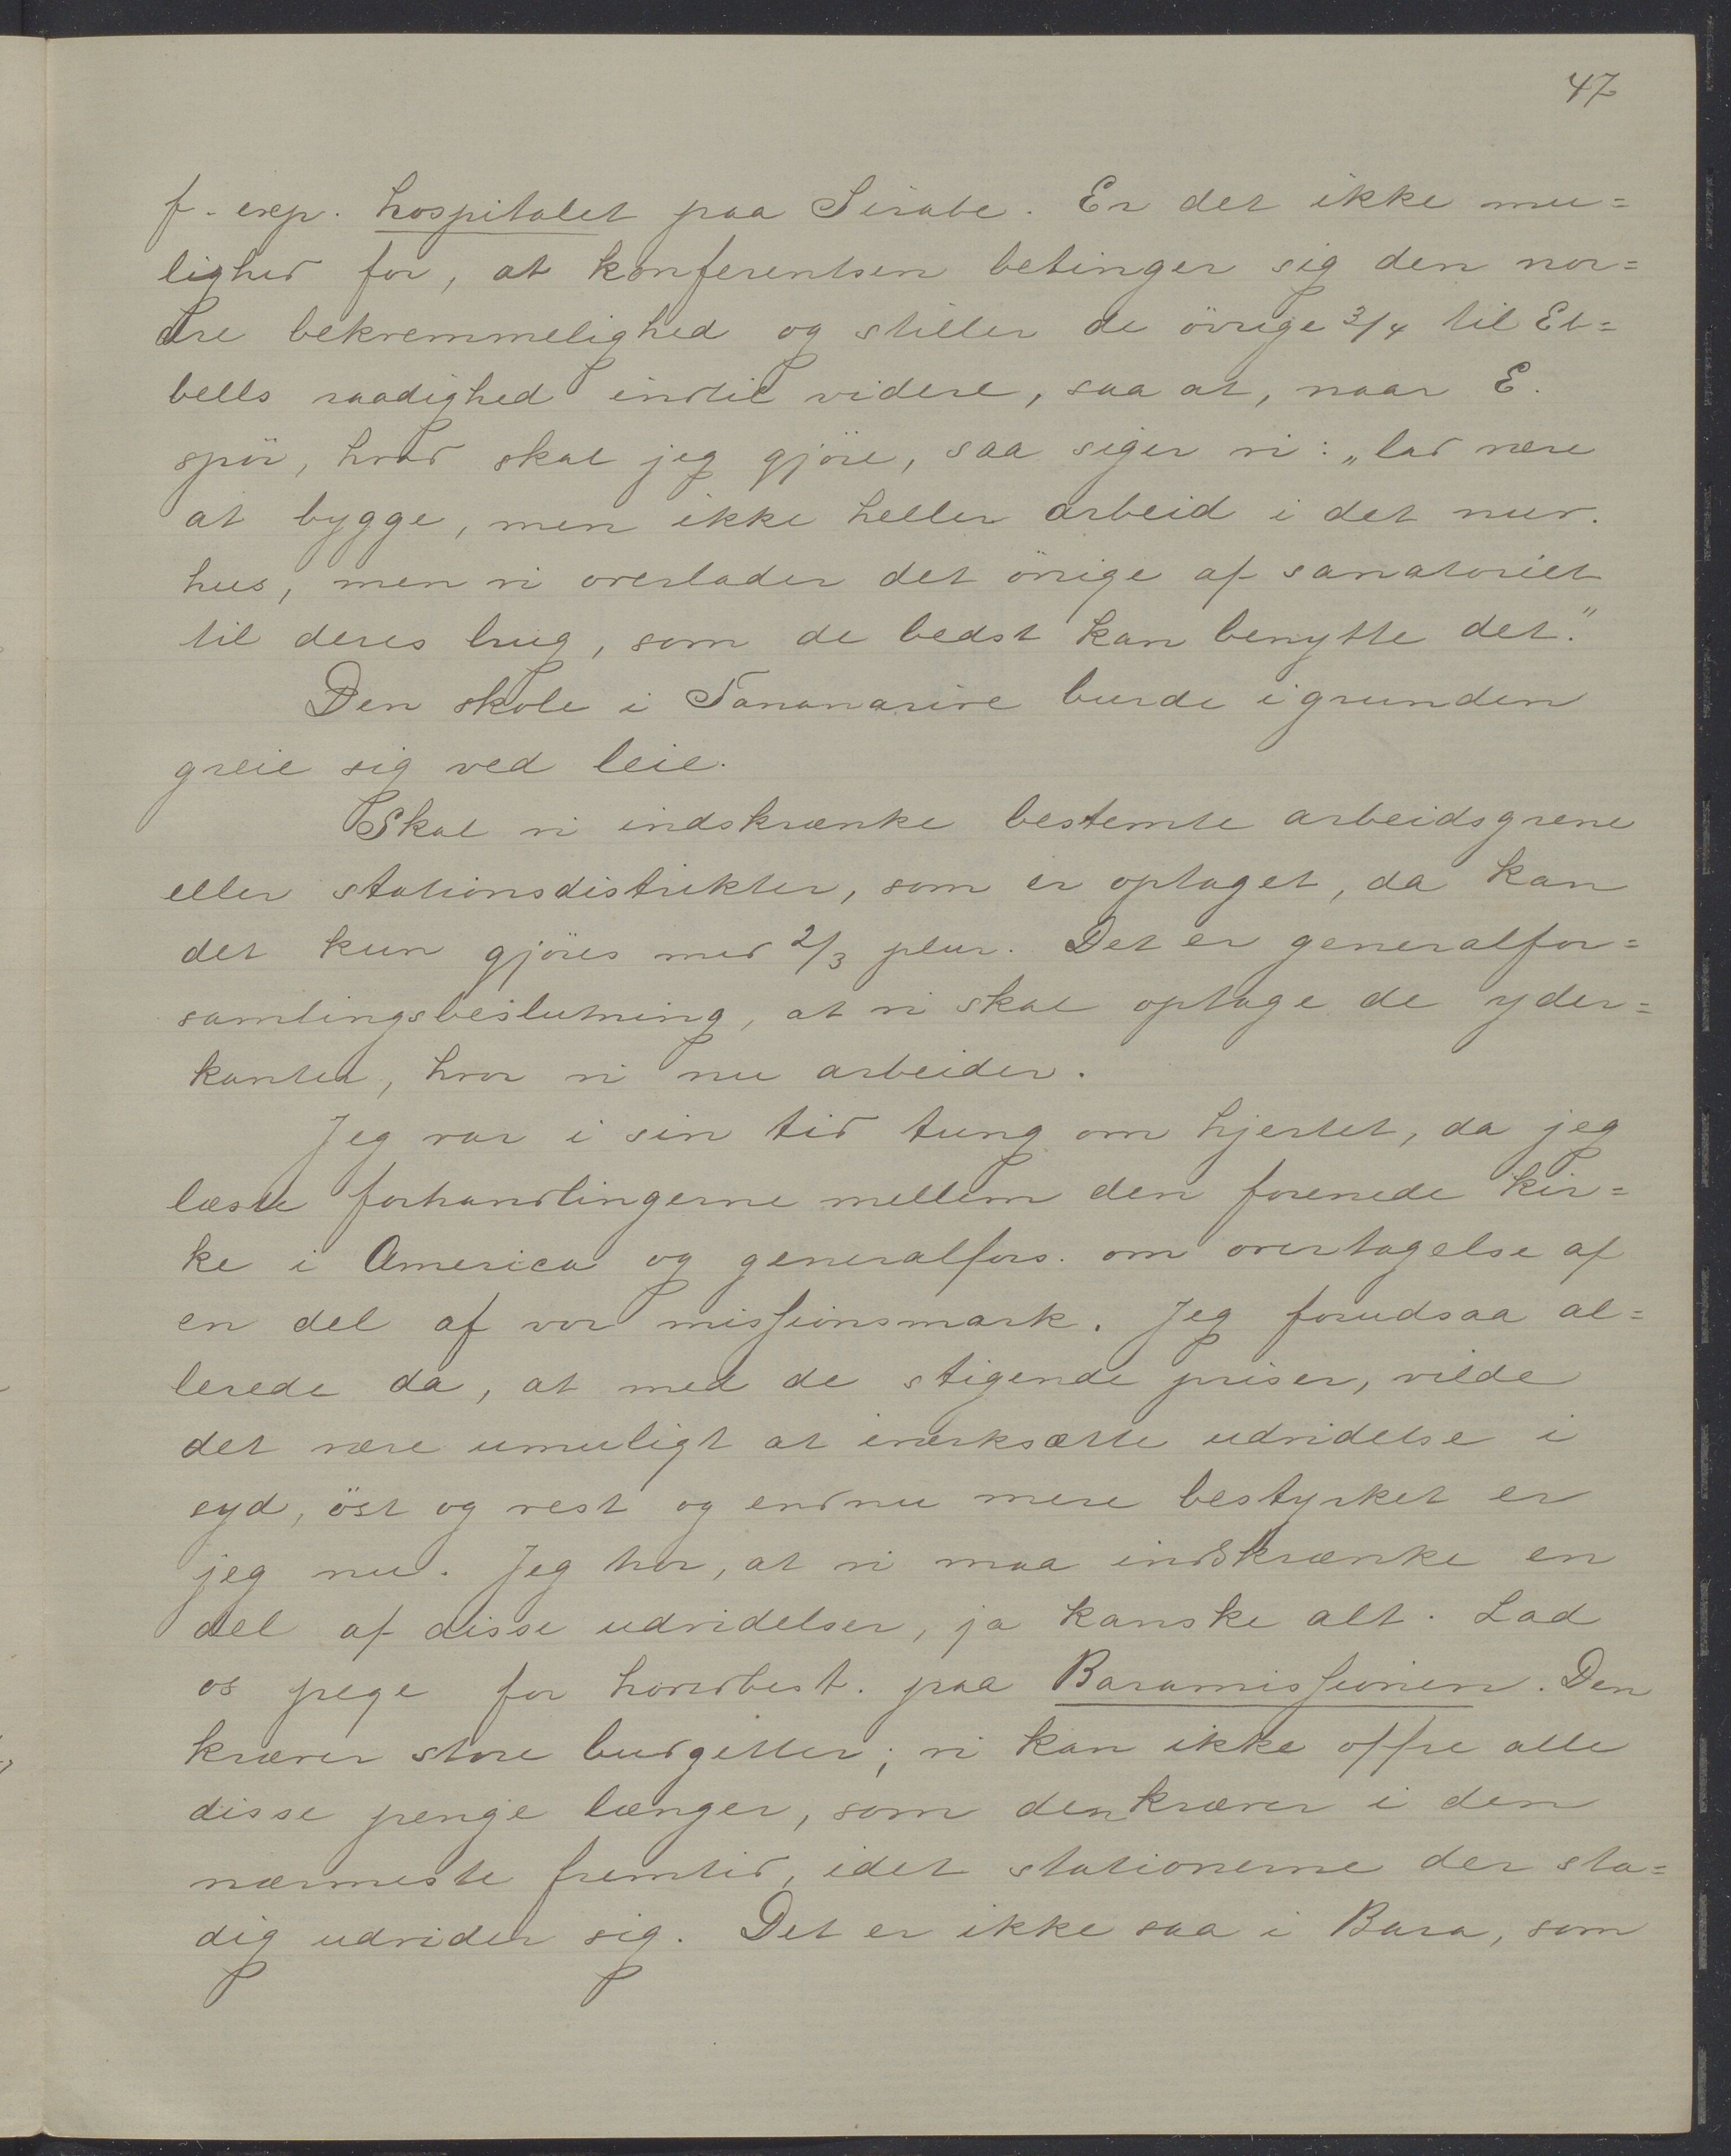 47
f. exp. hospitalet paa Sirabe. Er det ikke mu=
lighed for, at konferentsen betinger sig den nor=
dre bekvemmelighed og stiller de övrige 3/4 til Eb=
bells raadighed indtil videre, saa at, naar E.
spör, hvad skal jeg gjöre, saa siger vi: „lad være
at bygge, men ikke heller arbeid i det nuv.
hus, men vi overlader det övrige af sanatoriet
til deres brug, som de bedst kan benytte det."
Den skole i Tananarive burde igrunden
greie sig ved leie.
Skal vi indskrænke bestemte arbeidsgrene
eller stationsdistrikter, som er optaget, da kan
det kun gjöres med 2/3 plur. Det er generalfor=
samlingsbeslutning, at vi skal optage de yder=
kanter, hvor vi nu arbeider.
Jeg var i sin tid tung om hjertet, da jeg
læste forhandlingerne mellem den forenede kir=
ke i America og generalfors. om overtagelse af
en del af vor missionsmark. Jeg forudsaa al=
lerede da, at med de stigende priser, vilde
det være umuligt at iværksætte udvidelse i
syd, öst og vest og endnu mere bestyrket er
jeg nu. Jeg tror, at vi maa indskrænke en
del af disse udvidelser, ja kanske alt. Lad
os pege for hovedbest. paa Baramissionen. Den
kræver store budgetter; vi kan ikke offre alle
disse penge længer, som den kræver i den
nærmeste fremtid, idet stationerne der sta=
dig udvider sig. Det er ikke saa i Bara, som